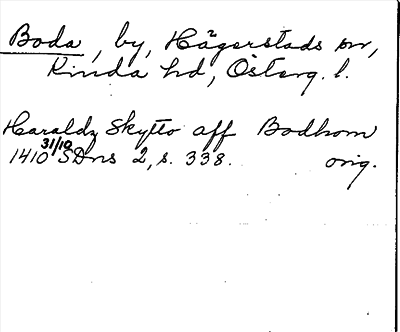 Boda, by, Hägerstads sn,
Kinda hd, Österg. l.
Haraldz Skytto aff Bodhom
1410 31/10 SDns 2, s. 338. orig.